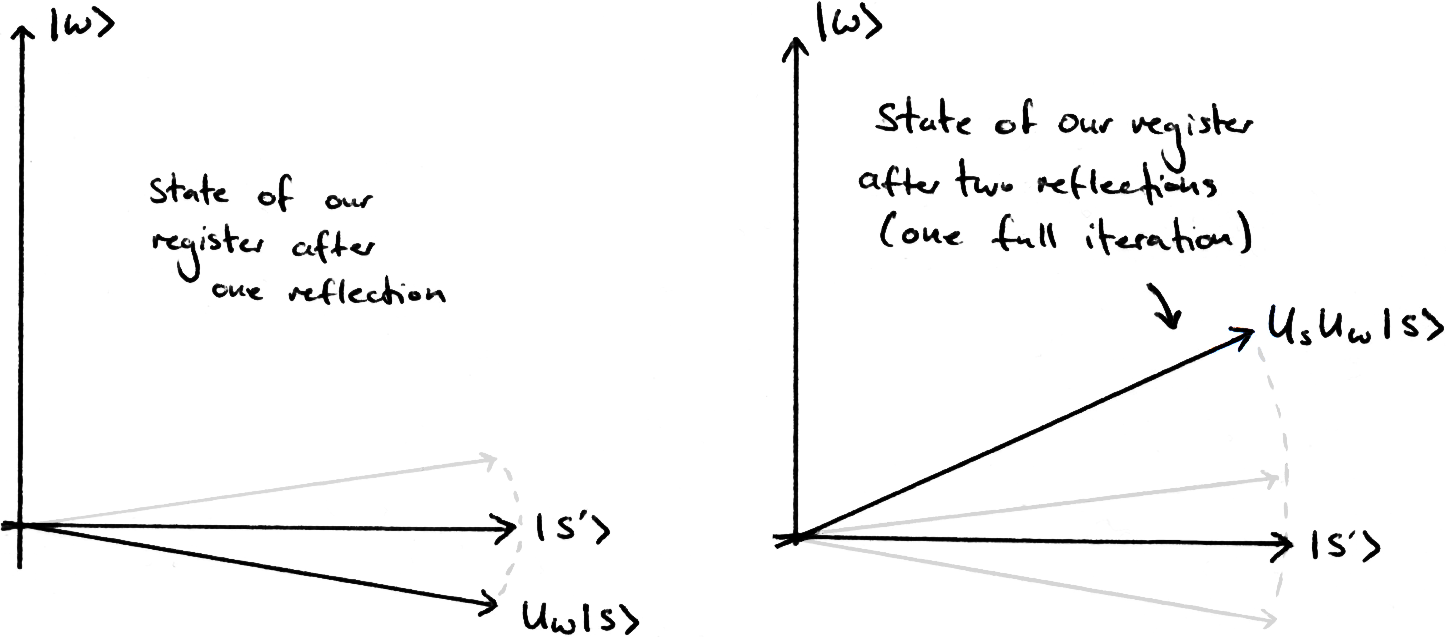 |ω>
State of our
register after
one reflection
|s'>
Uω|s>
|ω>
State of our register
after two reflections
(one full iteration)
UsUω|s>
|s'>